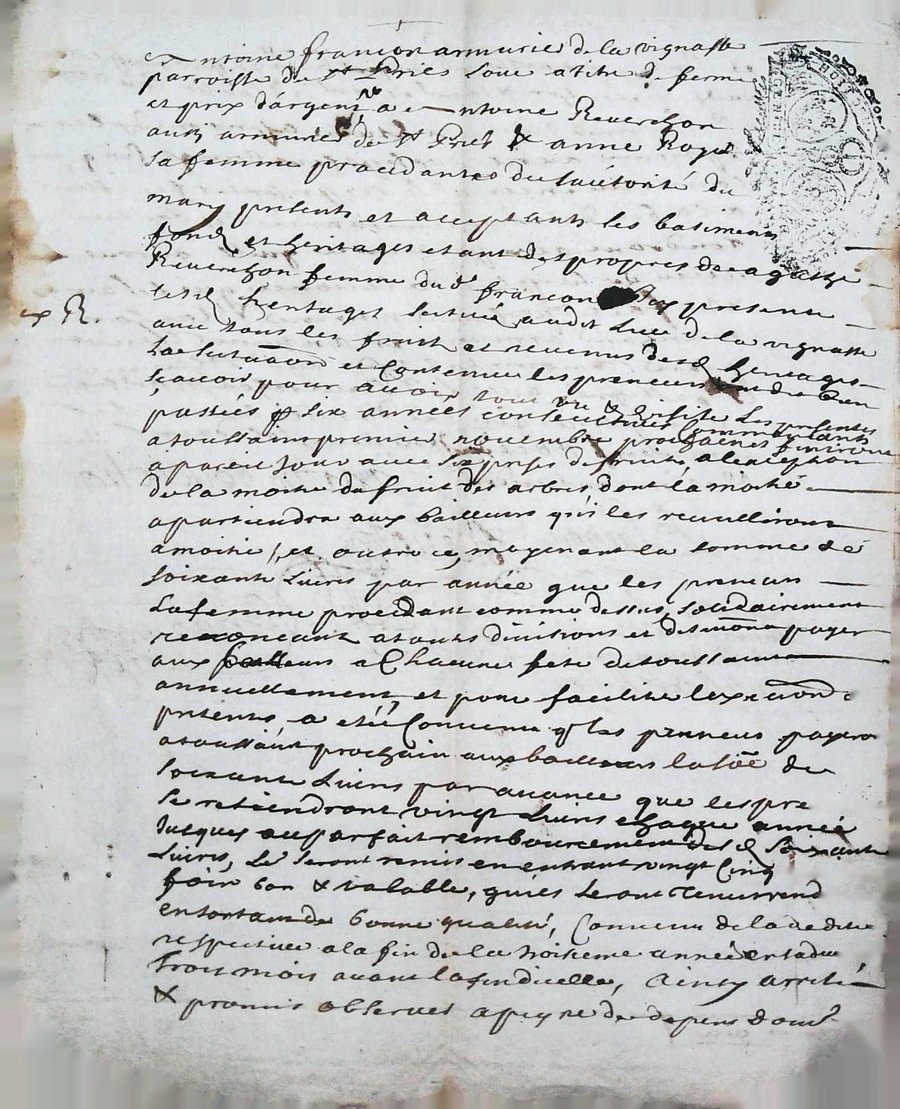 Antoine françon armurie de la vignasse
parroisse de st Pries Loue a titre de ferme
et prix d'argent a Antoine Reverchon
aussy armurie de st Priest & anne Roye
sa femme procedantes de l'autorité du
mary presents et acceptants les batiments
fonds et heritages etant des propres de agathe
Reverchon femme dud françon presente
lesd heritages scitués audit Lieu de la vignasse
avec tous les fruits et revenus desd heritages
La scituaon et Contenue les preneurs ont dit bien
sçavoir pour avoir tout vu & visité Les presentes
passées p six années consecutives commencants
a toussaint premier novembre prochain et finiront
a pareil jour avec six prises de fruits, a l'exception
de la moitié du fruit des arbres dont la moitié
apartiendra aux bailleurs qu'ils les recuilliront
a moitié, et outre ce, moyenant la somme de
soixante Livres par année que les preneurs
La femme procedant comme dessus, solidairement
renonceant a touts divisions et payer
aux bailleurs a Chacune fete de toussaint
annuellement, et pour facilité l'execuon des
presentes a eté Convenu q les preneurs payeront
a toussaint prochain aux bailleurs la soe de
soixante Livres par avance que les pre
se retiendront vingt Livres chaque année
Jusques au parfait remboursement desd soixante
Livres, Le seront remis en entrant vingt Cinq
foin bon & valable, quils seront tenus rend
en sortant de bonne qualité, Convenu de la dedite
respective a la fin de la troisieme année en tadue
trois mois avant la fin dicelle, Ainsy arreté
& promis observer a peyne de depens dom